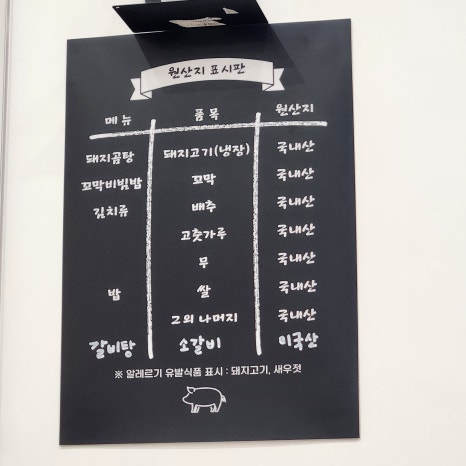 원산지 표시판
메뉴 품목 원산지
돼지곰탕 돼지고기(냉장) 국내산
꼬막비빔밥 꼬막 국내산
김치류 배추 국내산
고춧가루 국내산
무 국내산
밥 쌀 국내산
그외 나머지 국내산
갈비탕 소갈비 미국산
※ 알레르기 유발식품 표시 : 돼지고기, 새우젓